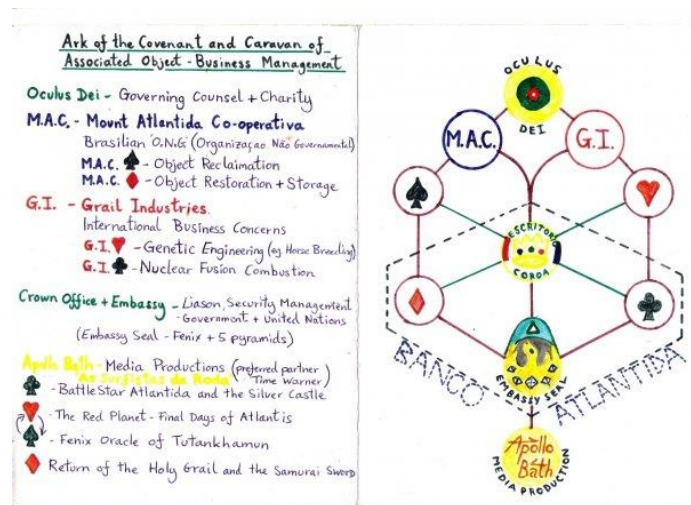 Ark of the Covenant and Caravan of
Associated Object - Business Management
Oculus Dei - Governing Counsel + Charity
M.A.C. - Mount Atlantida Co-operativa
Brasilian O.N.G (Organizaçao Não Governamental)
M.A.C. ♠ - Object Reclamation
M.A.C. ♦ - Object Restoration + Storage
G.I. - Grail Industries
International Business Concerns
G.I. ♥ - Genetic Engineering (eg Horse Breeding)
G.I. ♣ - Nuclear Fusion Combustion
Crown Office + Embassy - Liason, Security Management
- Government + United Nations
(Embassy Seal - Fenix + 5 pyramids)
Apollo Bath - Media Productions (preferred partner
As Surfistas da Roda Time Warner)
♣ - BattleStar Atlantida and the Silver Castle
♥ - The Red Planet - Final Days of Atlantis
♠ - Fenix Oracle of Tutankhamun
♦ Return of the Holy Grail and the Samurai Sword
OCULUS
DEI
M.A.C.
G.I.
ESCRITORIO
COROA
EMBASSY SEAL
BANCO ATLANTIDA
Apollo
Bath
MEDIA PRODUCTION